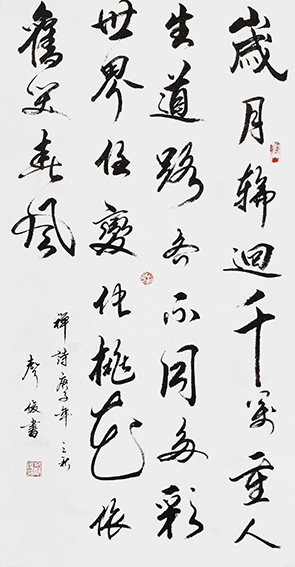 歲月輪迴千萬重人
生道路各不同多彩
世界任變化桃花依
舊笑春風
禪詩庚子年之秋
俊書